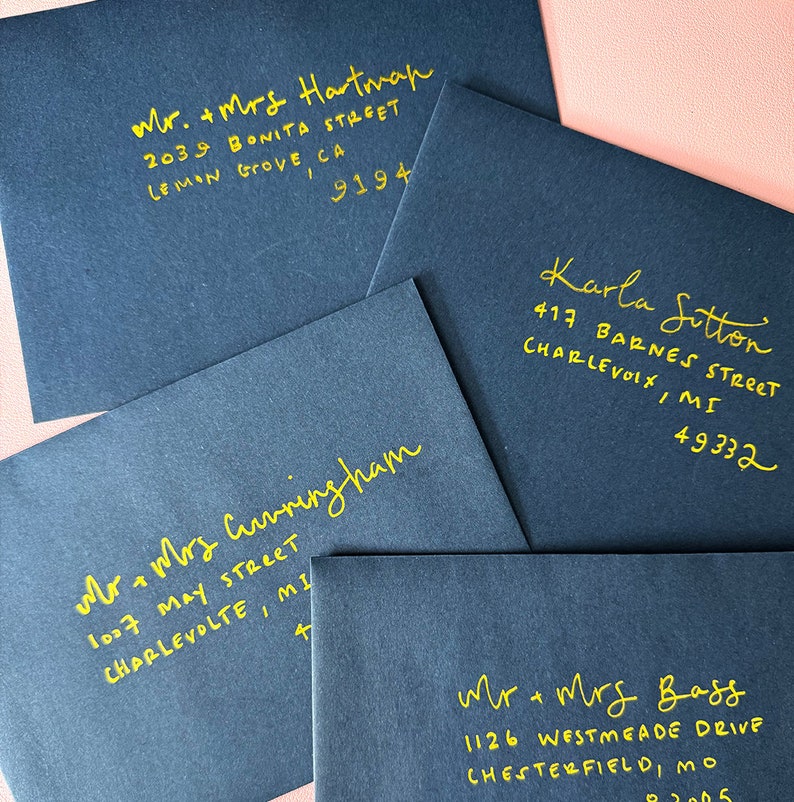 Mr. + Mrs Hartman
2039 BONITA STREET
LEMON GROVE, CA
9194
Karla Sutton
417 BARNES STREET
CHARLEVOIX, MI
49332
Mr + Mrs Cunningham
1007 MAY STREET
CHARLEVOLTE, MI
4
Mr + Mrs Bass
1126 WESTMEADE DRIVE
CHESTERFIELD, MO